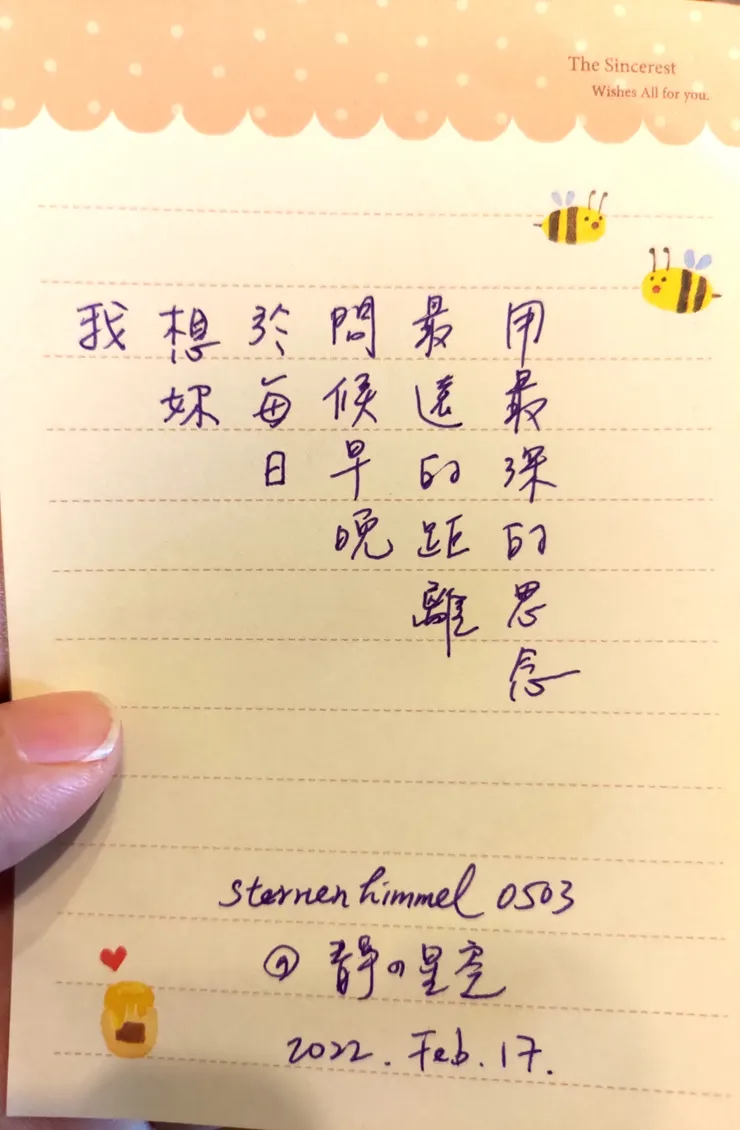 The Sincerest
Wishes All for you.
用最深的思念
最遠的距離
問候早晚
於每日
想妳
我
sternenhimmel 0503
@ 靜の星空
2022. Feb. 17.